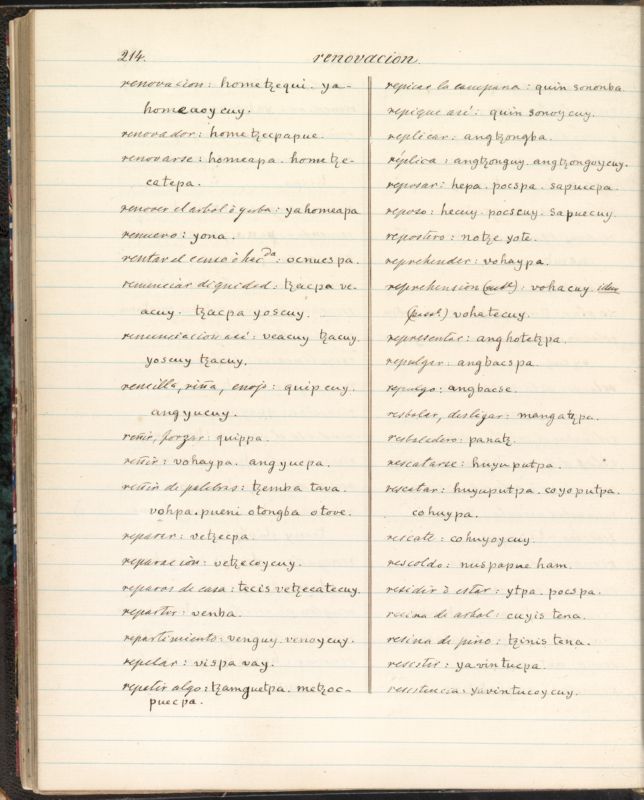 214.
renovacion.
renovacion: hometzequi. ya-
homeaoycuy.
renovador: hometzecpapue.
renovarse: homeapa. hometze-
catepa.
renover el arbol ò yerba: yahomeapa
renuevo: yona.
rentar el censo ò hacda: ocnuespa.
renunciar dignidad: tzacpa ve-
acuy. tzacpa yoscuy.
renunciacion asi: veacuy tzacuy.
yoscuy tzacuy.
rencilla, riña, enojo: quipcuy.
angyucuy.
reñir, forzar: quippa.
reñir: vohaypa. angyuepa.
reñir de palabras: tzemba tava.
vohpa. pueni otongba otove.
reparar: vetzecpa.
reparacion: vetzecoycuy.
reparos de casa: tecis vetzecatecuy.
repartir: venba.
repartimiento: venguy. venoycuy.
repelar: vispa vay.
repetir algo: tzamguetpa. metzoc-
puecpa.
repicar la campana: quin sononba.
repique asi: quin sonoycuy.
replicar: angtzongba.
réplica: angtzonguy. angtzonguycuy.
reposar: hepa. pocspa. sapuecpa.
reposo: hecuy. pocscuy. sapuecuy.
repostero: notze yote.
reprehender: vohaypa.
reprehension (actve): vohacuy. idem
vohatecuy.
representar: anghotetzpa.
repulgar: angbacspa.
repulgo: angbacse.
resbalar, deslizar: mangatzpa.
resbaladero: panatz.
rescatarse: huyuputpa.
rescatar: huyuputpa. coyoputpa.
cohuypa.
rescate: cohuyoycuy.
rescoldo: nuspapue ham.
residir ò estar: ytpa. pocspa.
resina de arbol: cuyis tena.
resina de pino: tzinis tena.
resistir: yavintuepa.
resistencia: yavintucoycuy.